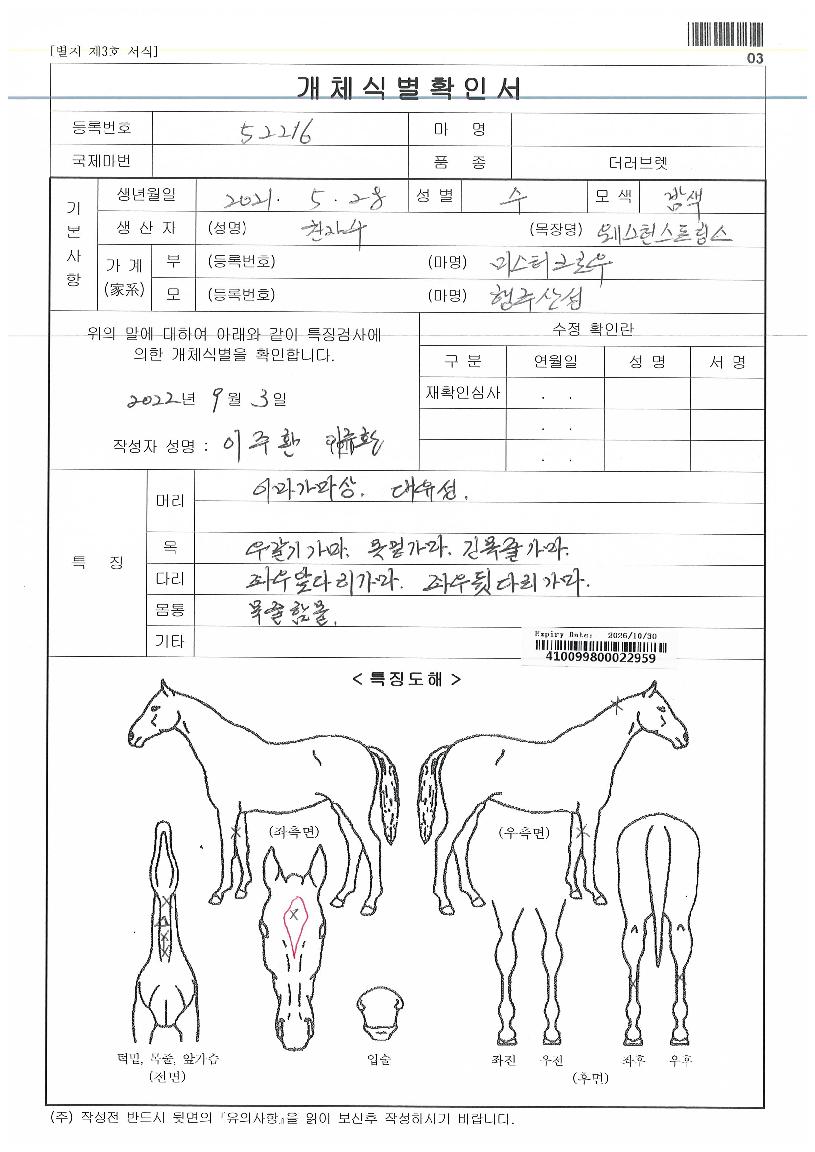 [별지 제3호 서식]
03
개체식별확인서
등록번호 52216 마 명
국제마번 품 종 더러브렛
기본사항
생년월일 2021. 5. 28 성별 수 모색 밤색
생 산 자 (성명) (목장명) 웨스턴스트림스
가계 (家系) 부 (등록번호) (마명) 미스터크로우
모 (등록번호) (마명) 행주산성
위의 말에 대하여 아래와 같이 특징검사에
의한 개체식별을 확인합니다.
2022년 9월 3일
작성자 성명 : 이주환
수정 확인란
구 분 연월일 성 명 서 명
재확인심사 . .
. .
. .
특 징
머리 이마가마상. 대유성.
목 우갈기가마. 목밑가마. 긴목줄가마.
다리 좌우앞다리가마. 좌우뒷다리가마.
몸통 목줄함몰.
기타
Expiry Date: 2026/10/30
410099800022959
< 특징도해 >
(좌측면) (우측면)
턱밑, 목줄, 앞가슴
(전면)
입술
좌진 우진 좌후 우후
(후면)
(주) 작성전 반드시 뒷면의 『유의사항』을 읽어 보신후 작성하시기 바랍니다.